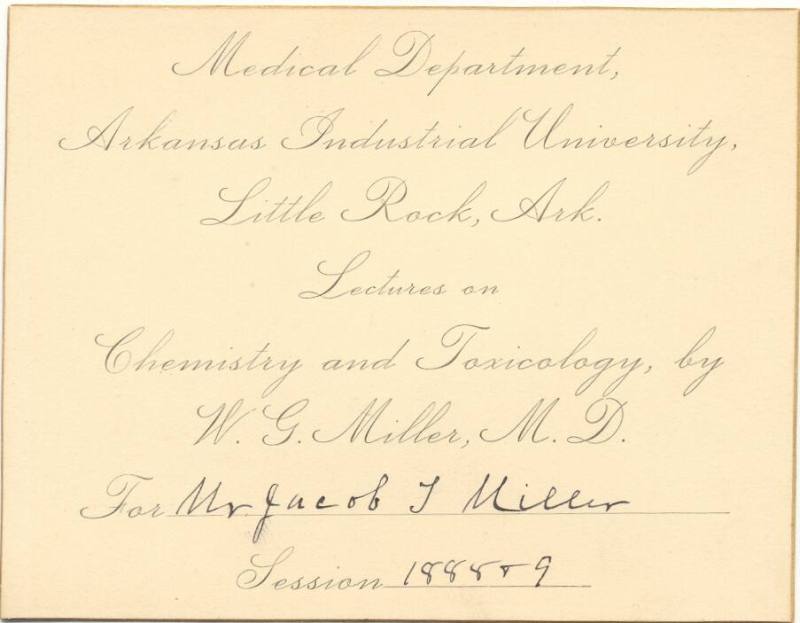 Medical Department,
Arkansas Industrial University,
Little Rock, Ark.
Lectures on
Chemistry and Toxicology, by
W. G. Miller, M. D.
For Mr Jacob T Miller
Session 1888 & 9